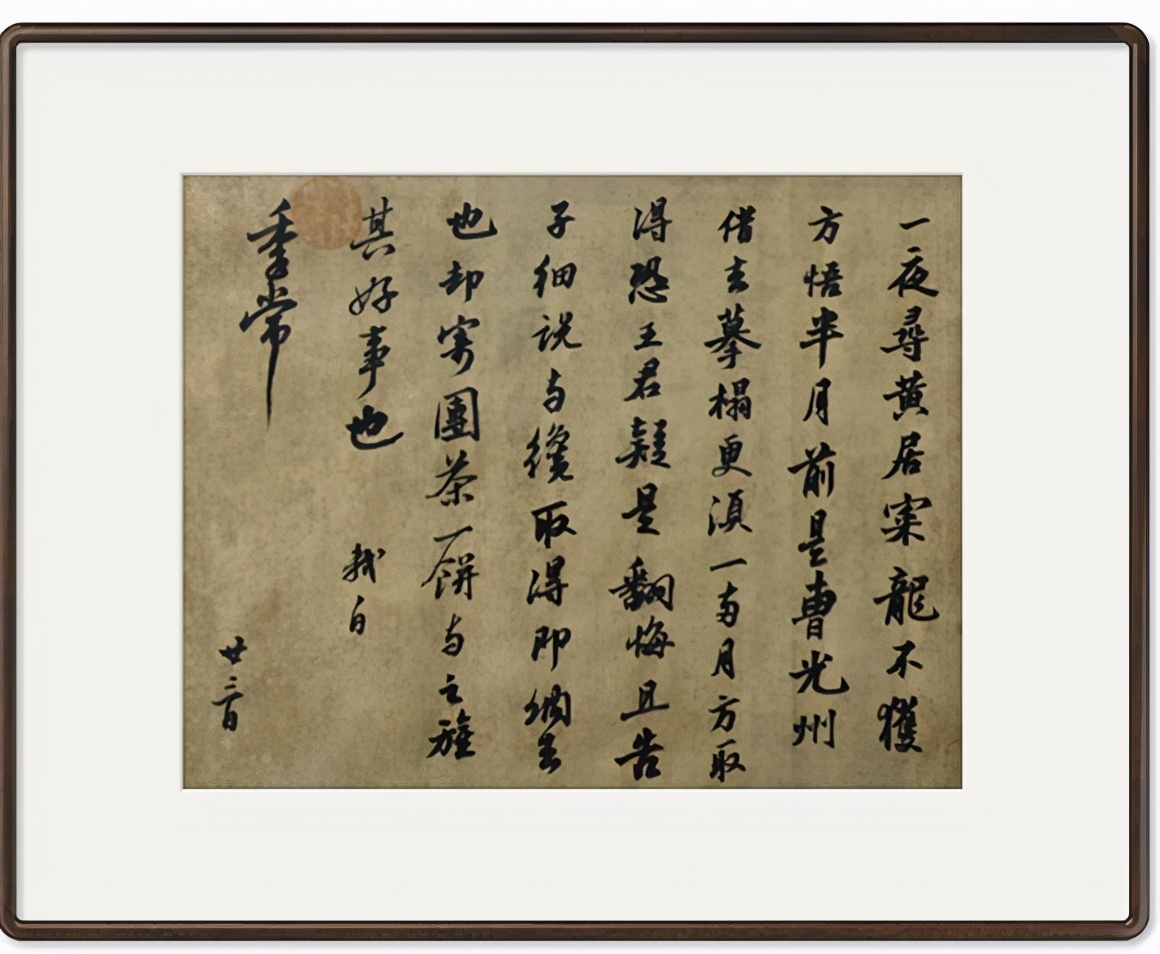 一夜尋黃居寀龍不獲
方悟半月前是曹光州
借去摹榻更須一兩月方取
得恐王君疑是翻悔且告
子細說與纔取得即納去
也却寄團茶一餅與之旌
其好事也 軾白
季常
廿三日